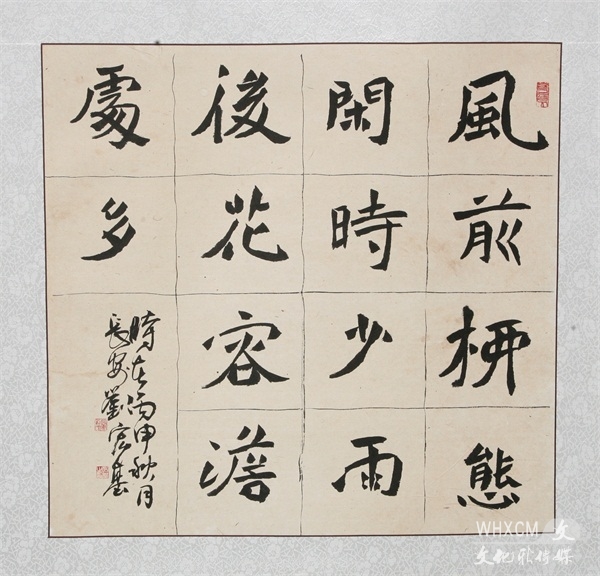 風前柳態
閑時少雨
後花容澹
處多
時在丙申秋月
長安劉基
WHXCM 文
文化新传媒